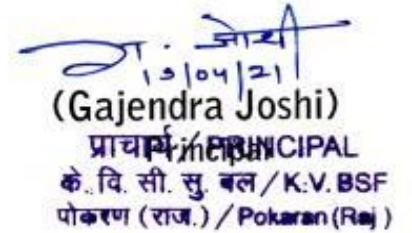 ग. जोशी
13/04/21
(Gajendra Joshi)
Principal
प्राचार्य / PRINCIPAL
के. वि. सी. सु. बल / K.V. BSF
पोकरण (राज.) / Pokaran (Raj)